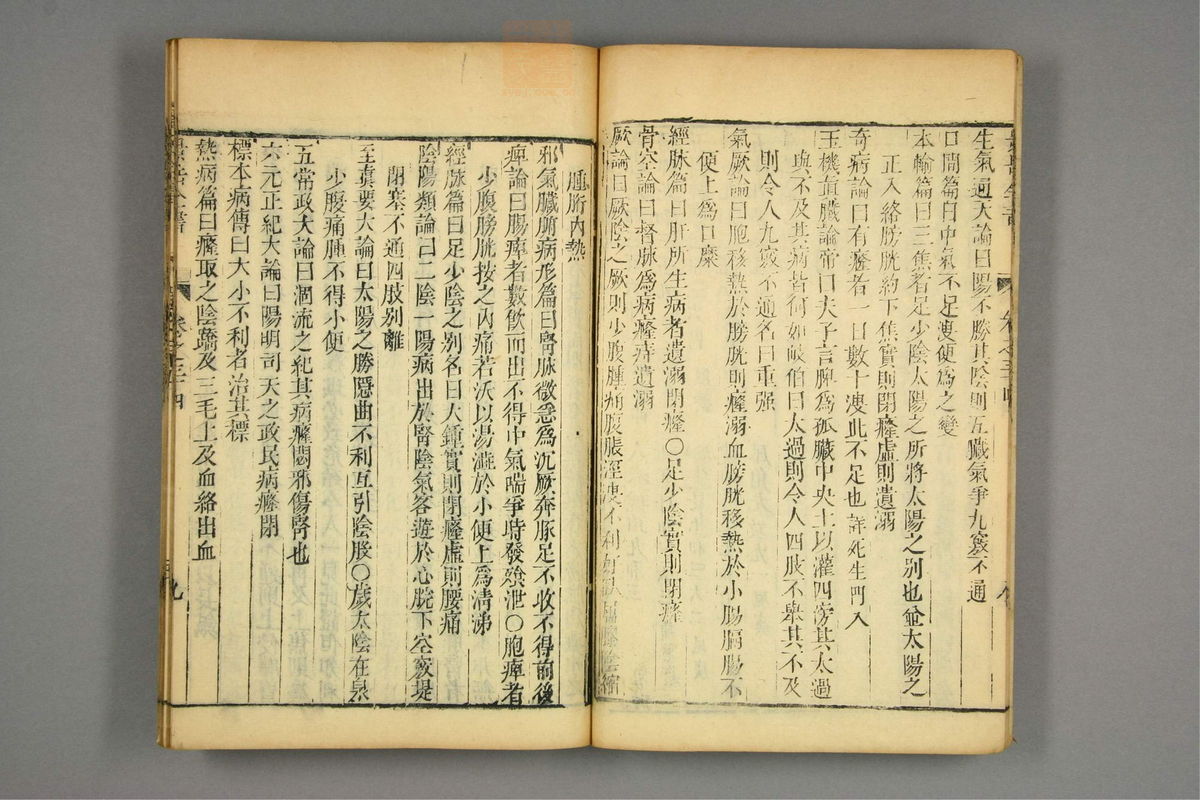 生氣通天論曰陽不勝其陰則五臟氣爭九竅不通
口問篇曰中氣不足溲便為之變
本輸篇曰三焦者足少陰太陽之所將太陽之別也並太陽之
正入絡膀胱約下焦實則閉癃虛則遺溺
奇病論曰有癃者一日數十溲此不足也詳死生門八
玉機眞臟論帝曰夫子言脾為孤臟中央土以灌四傍其太過
與不及其病皆何如岐伯曰太過則令人四肢不舉其不及
則令人九竅不通名曰重强
氣厥論曰胞移熱於膀胱則癃溺血膀胱移熱於小腸膈腸不
便上為口糜
經脉篇曰肝所生病者遺溺閉癃〇足少陰實則閉癃
骨空論曰督脉為病癃痔遺溺
厥論曰厥陰之厥則少腹腫痛腹脹溲不利好臥屈膝陰縮
卷之三十四
八
腫胻內熱
邪氣臟腑病形篇曰腎脉微急為沉厥奔豚足不收不得前後
痺論曰腸痺者數飲而出不得中氣喘爭時發飱泄〇胞痺者
少腹膀胱按之內痛若沃以湯澁於小便上為清涕
經脉篇曰足少陰之別名曰大鍾實則閉癃虛則腰痛
陰陽類論曰二陰一陽病出於腎陰氣客遊於心脘下空竅堤
閉塞不通四肢別離
至眞要大論曰太陽之勝隱曲不利互引陰股〇歲太陰在泉
少腹痛腫不得小便
五常政大論曰涸流之紀其病癃閟邪傷腎也
六元正紀大論曰陽明司天之政民病癃閉
標本病傳曰大小不利者治其標
熱病篇曰癃取之陰蹻及三毛上及血絡出血
景岳全書
卷之三十四
九